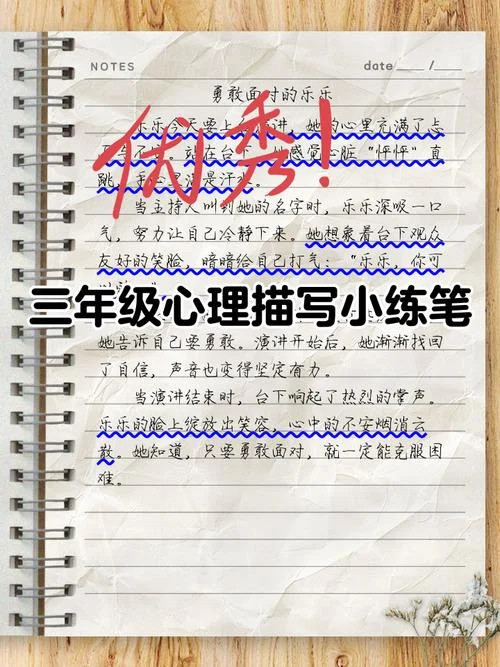 NOTES
date___/__
勇敢面对的乐乐
乐乐今天要上 讲,她的心里充满了忐
站在台下,她感觉心脏“怦怦”直
跳,手心里满是汗水。
当主持人叫到她的名字时,乐乐深吸一口
气,努力让自己冷静下来。她想象着台下观众
友好的笑脸,暗暗给自己打气:“乐乐,你可
优秀!
三年级心理描写小练笔
她告诉自己要勇敢。演讲开始后,她渐渐找回
了自信,声音也变得坚定有力。
当演讲结束时,台下响起了热烈的掌声。
乐乐的脸上绽放出笑容,心中的不安烟消云
散。她知道,只要勇敢面对,就一定能克服困
难。